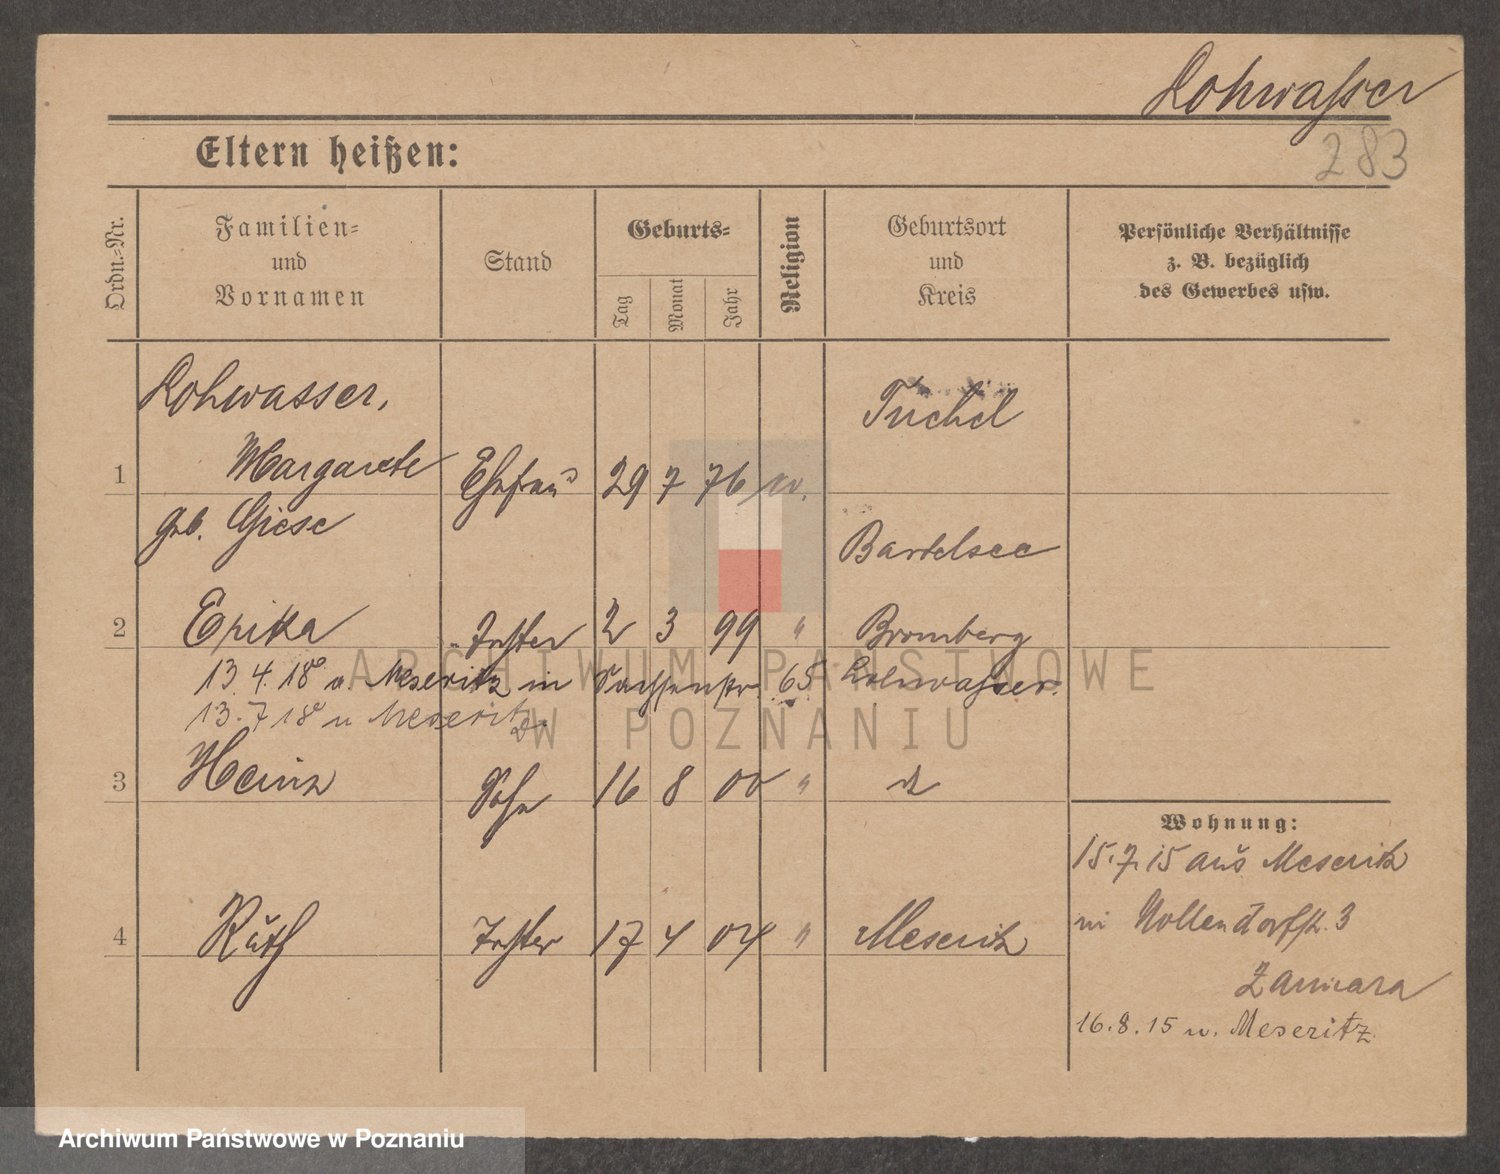 Lohwasser
283
Eltern heißen:
Ordn.-Nr.
Familien-
und
Vornamen
Stand
Geburts-
Tag
Monat
Jahr
Religion
Geburtsort
und
Kreis
Persönliche Verhältnisse
z. B. bezüglich
des Gewerbes usw.
Lohwasser,
Tuchel
1 Margarete Ehefrau 29 7 76 ev.
geb. Giese
Bartelsee
2 Erika Tochter 2 3 99 " Bromberg
13.4.18 v. Meseritz in Sachsenstr. 65 Lohwasser.
13.7 18 n Meseritz
3 Heinz Sohn 16 8 00 " d
Wohnung:
15.7.15 aus Meseritz
4 Ruth Tochter 17 4 04 " Meseritz
in Nollendorfstr. 3
16.8.15 n. Meseritz
ARCHIWUM PAŃSTWOWE
W POZNANIU
Archiwum Państwowe w Poznaniu